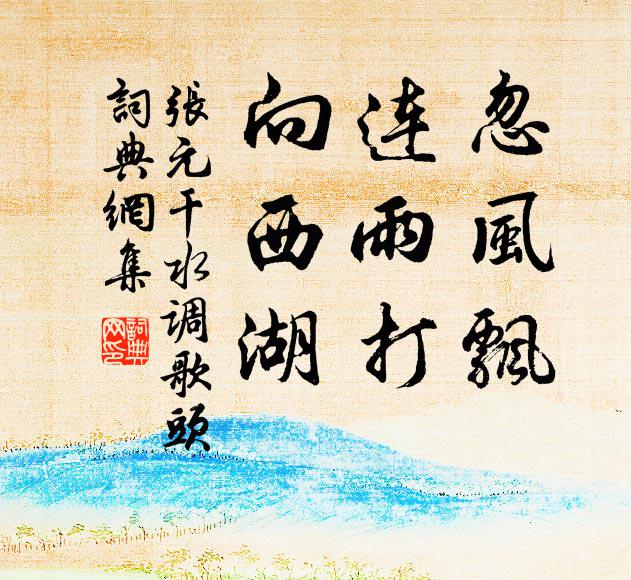 忽風飄
連雨打
向西湖
張元干水调歌頭
詞典網集
詞典网印